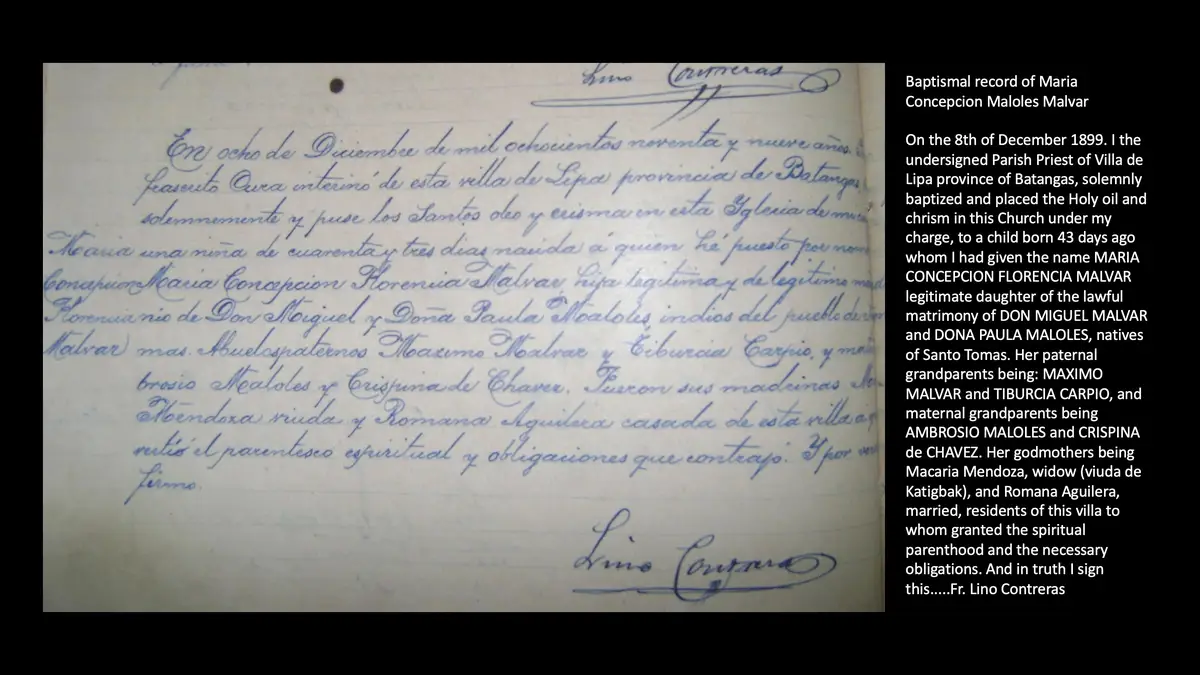 Lino Contreras
En ocho de Diciembre de mil ochocientos noventa y nueve años.
frascrito Cura interinó de esta villa de Lipa provincia de Batangas
solemnemente y puse los Santos oleo y crisma en esta Yglecia de
Maria una niña de cuarenta y tres dias nacida á quien hé puesto por nom
Concepcion Maria Concepcion Florencia Malvar, hija legitima y de legitimo
Florencia nio de Don Miguel y Doña Paula Maloles, indios del pueblo de
Malvar mas. Abuelos paternos Maximo Malvar y Tiburcia Carpio, y
brosio Maloles y Crispina de Chavez. Fueron sus madrinas
Mendoza viuda y Romana Aguilera casada de esta villa a
vertió el parentesco espiritual y obligaciones que contrajo. Y por
firmo.
Lino Contreras
Baptismal record of Maria
Concepcion Maloles Malvar
On the 8th of December 1899. I the
undersigned Parish Priest of Villa de
Lipa province of Batangas, solemnly
baptized and placed the Holy oil and
chrism in this Church under my
charge, to a child born 43 days ago
whom I had given the name MARIA
CONCEPCION FLORENCIA MALVAR
legitimate daughter of the lawful
matrimony of DON MIGUEL MALVAR
and DONA PAULA MALOLES, natives
of Santo Tomas. Her paternal
grandparents being: MAXIMO
MALVAR and TIBURCIA CARPIO, and
maternal grandparents being
AMBROSIO MALOLES and CRISPINA
de CHAVEZ. Her godmothers being
Macaria Mendoza, widow (viuda de
Katigbak), and Romana Aguilera,
married, residents of this villa to
whom granted the spiritual
parenthood and the necessary
obligations. And in truth I sign
this.....Fr. Lino Contreras